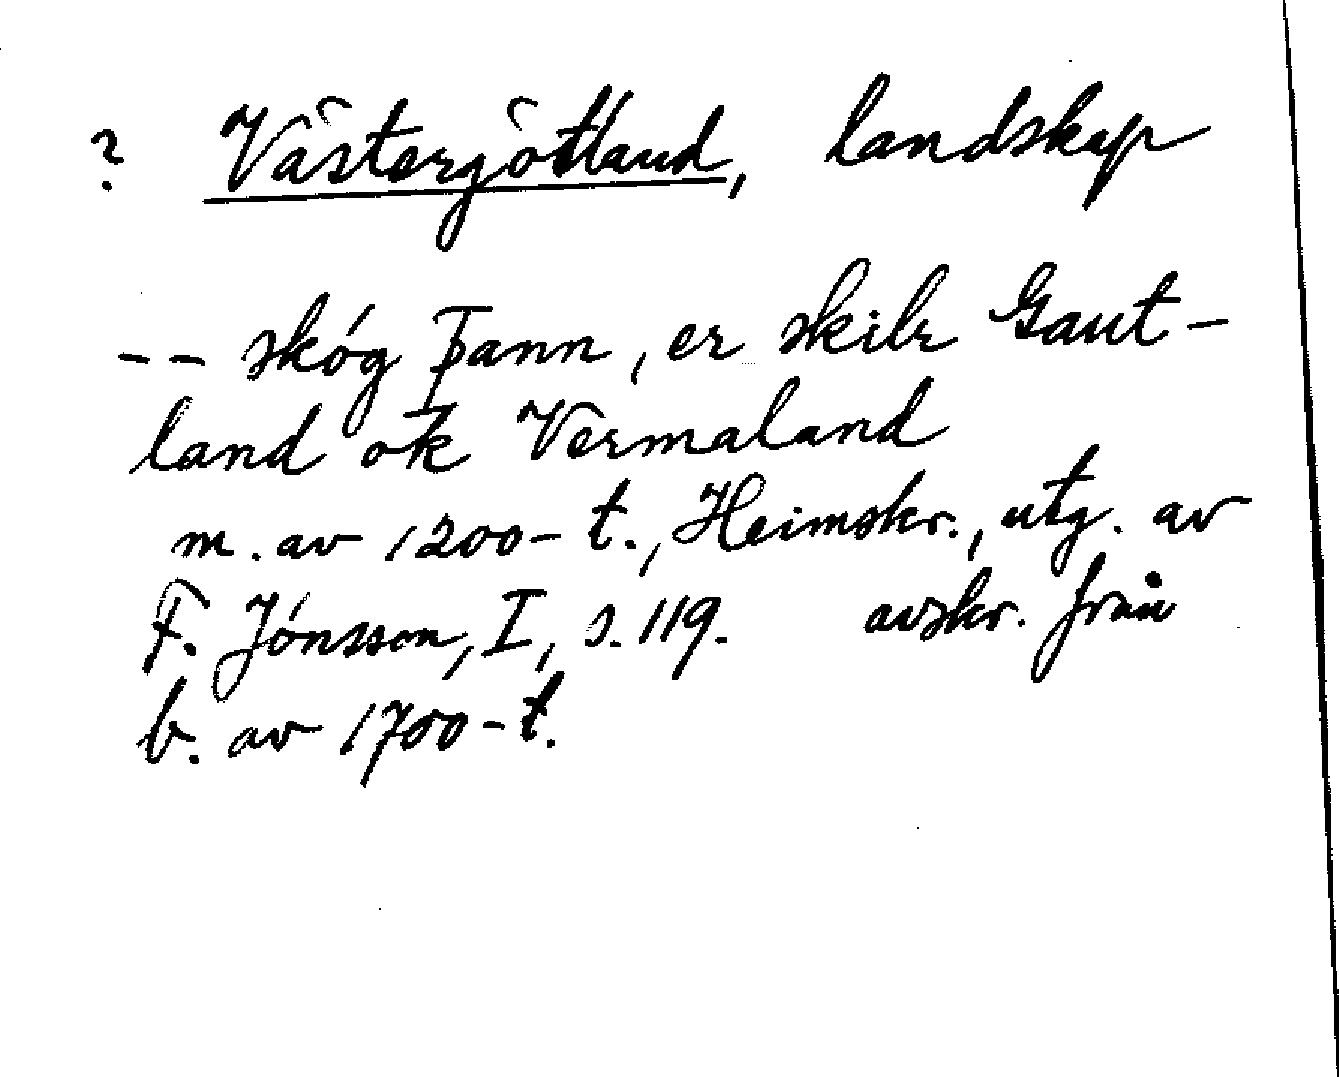 ? Västergötland, landskap
-- skóg Þann, er skilr Gaut-
land ok Vermaland
m. av 1200-t., Heimskr., utg. av
F. Jónsson, I, s. 119. avskr. från
b. av 1700-t.